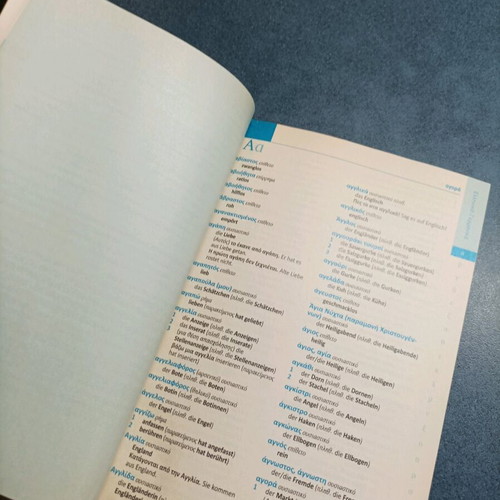 Αα
αγορά
άβαστος επίθετο
zwanglos
αβοήθητα επίρρημα
ratlos
αβοήθητος επίθετο
hilflos
roh
επίθετο
empört
αγάπη ουσιαστικό
die Liebe
[Αυτός] το έκανε από αγάπη. Er hat es
aus Liebe getan.
Η πρώτη αγάπη δεν ξεχνιέται. Alte Liebe
rostet nicht.
αγαπητός επίθετο
lieb
αγαπούλα (μου) ουσιαστικό
das Schätzchen (πληθ. die Schätzchen)
αγαπώ ρήμα
lieben (παρακείμενος hat geliebt)
αγγελία ουσιαστικό
1 die Anzeige (πληθ. die Anzeigen)
2 das Inserat (πληθ. die Inserate)
3 (για θέση απασχόλησης) die
Stellenanzeige (πληθ. die Stellenanzeigen)
βάζω μια αγγελία inserieren (παρακείμενος
hat inseriert)
αγγελιαφόρος (αρσενικό) ουσιαστικό
der Bote (πληθ. die Boten)
αγγελιαφόρος (θηλυκό) ουσιαστικό
die Botin (πληθ. die Botinnen)
άγγελος ουσιαστικό
der Engel (πληθ. die Engel)
αγγίζω ρήμα
1 anfassen (παρακείμενος hat angefasst)
2 berühren (παρακείμενος hat berührt)
Αγγλία ουσιαστικό
England
Κατάγονται από την Αγγλία. Sie kommen
aus England.
Αγγλίδα ουσιαστικό
die Engländerin (πληθ. die
Engländerinnen)
αγγλικά ουσιαστικό πληθ
das Englisch
Πες το στα αγγλικά! Sag es auf Englisch!
αγγλικός επίθετο
englisch
Άγγλος ουσιαστικό
der Engländer (πληθ. die Engländer)
αγγούρι ουσιαστικό
die Gurke (πληθ. die Gurken)
αγελάδα ουσιαστικό
die Kuh (πληθ. die Kühe)
άγευστος επίθετο
geschmacklos
Άγια Νύχτα (παραμονή Χριστουγέν-
νων) ουσιαστικό
der Heiligabend (πληθ. die Heiligabende)
άγιος επίθετο
heilig
άγιος, αγία ουσιαστικό
der/die Heilige (πληθ. die Heiligen)
αγκάθι ουσιαστικό
1 der Dorn (πληθ. die Dornen)
2 der Stachel (πληθ. die Stacheln)
αγκίστρι ουσιαστικό
die Angel (πληθ. die Angeln)
άγκιστρο ουσιαστικό
der Haken (πληθ. die Haken)
αγκώνας ουσιαστικό
der Ellbogen (πληθ. die Ellbogen)
αγνός επίθετο
rein
άγνωστος, άγνωστη ουσιαστικό
der/die Fremde (πληθ. die Fremden)
αγορά ουσιαστικό